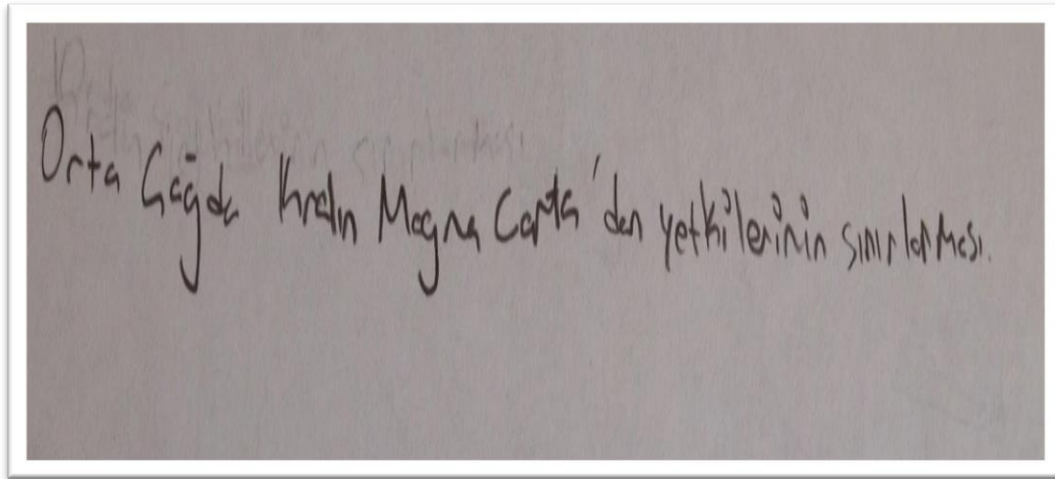 Orta Çağda Kralın Magna Carta'dan yetkilerinin sınırlarması.